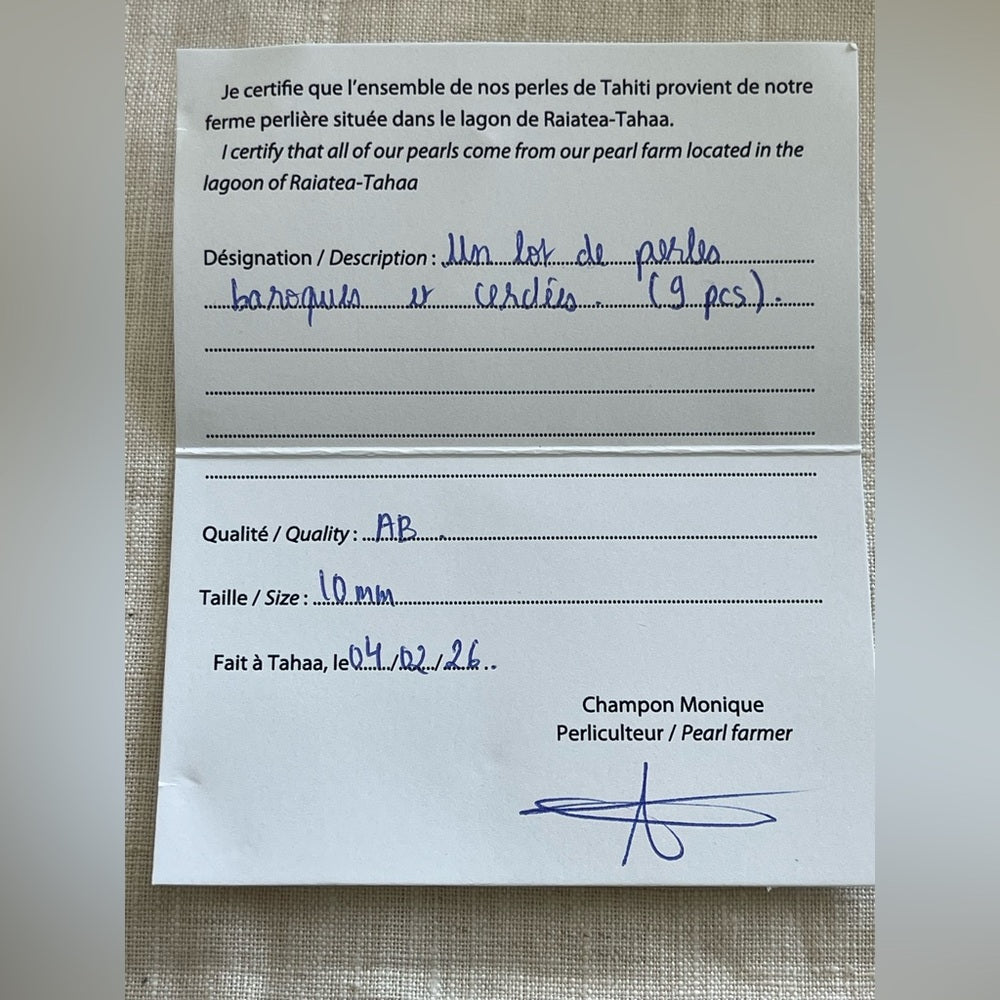 Je certifie que l'ensemble de nos perles de Tahiti provient de notre
ferme perlière située dans le lagon de Raiatea-Tahaa.
I certify that all of our pearls come from our pearl farm located in the
lagoon of Raiatea-Tahaa
Désignation / Description : Un lot de perles
baroques et cerclées. (9 pcs).
Qualité / Quality : AB.
Taille / Size : 10 mm
Fait à Tahaa, le 04/02/26
Champon Monique
Perliculteur / Pearl farmer